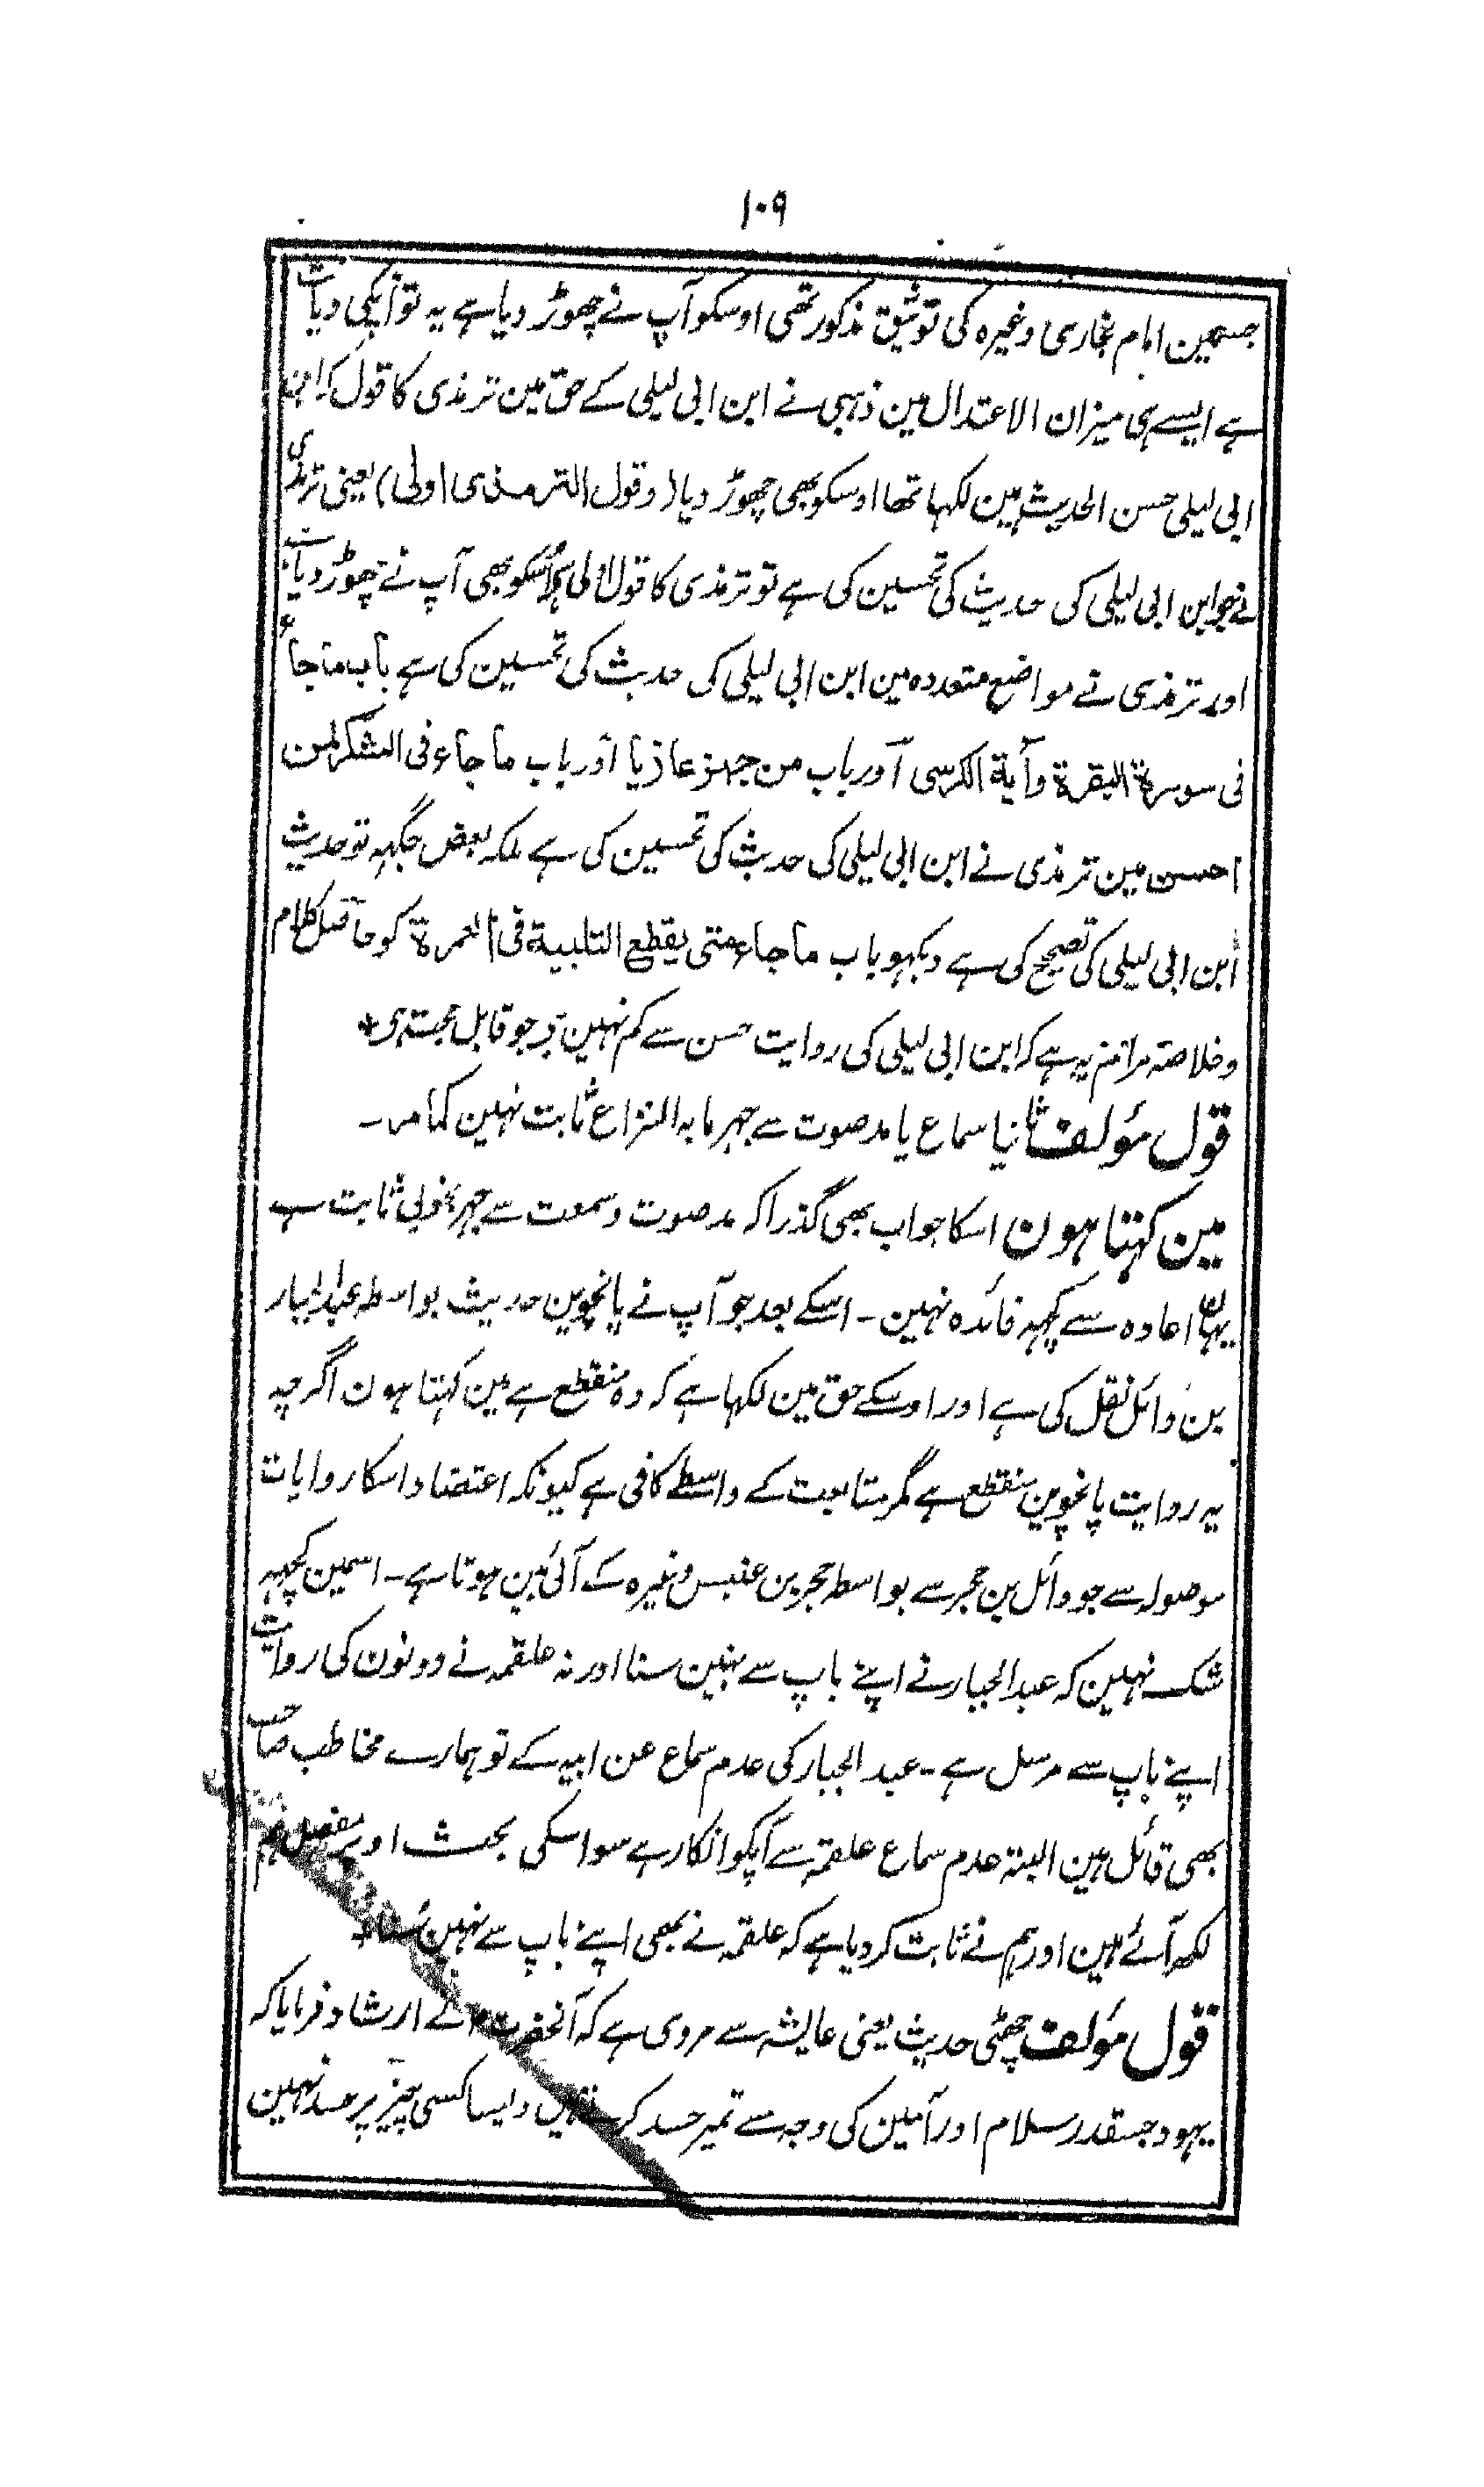 ۱۰۹
جسمین امام بخاری وغیرہ کی توثیق مذکور تھی اوسکو آپ نے چھوڑ دیا ہے یہ تو آپکی دیانت
ہے ایسے ہی میزان الاعتدال مین ذہبی نے ابن ابی لیلی کے حق مین ترمذی کا قول کہ ابن
ابی لیلی حسن الحدیث ہین لکہا تھا اوسکو بھی چھوڑ دیا (وقول الترمذی اولی) یعنی ترمذی
نے جو ابن ابی لیلی کی حدیث کی تحسین کی ہے تو ترمذی کا قول اولی ہے اُسکو بھی آپ نے چھوڑ دیا
اور ترمذی نے مواضع متعددہ مین ابن ابی لیلی کی حدیث کی تحسین کی ہے باب ما جاء
فی سورۃ البقرۃ وآیۃ الکرسی اور باب من جہز غازیا اور باب ما جاء فی الشکر لمن
احسن مین ترمذی نے ابن ابی لیلی کی حدیث کی تحسین کی ہے بلکہ بعض جگہہ تو حدیث
ابن ابی لیلی کی تصحیح کی ہے دیکہو باب ما جاء متی یقطع التلبیۃ فی العمرۃ کو حاصل کلام
وخلاصہ مرام یہ ہے کہ ابن ابی لیلی کی روایت حسن سے کم نہین ہے جو قابل حجت ہے *
قول مؤلف ثانیا سماع یا مد صوت سے جہر ما بہ النزاع ثابت نہین کما مر۔
مین کہتا ہون اسکا جواب بھی گذرا کہ مد صوت وسمعت سے جہر بخوبی ثابت ہے
یہان اعادہ سے کچہہ فائدہ نہین۔ اسکے بعد جو آپ نے پانچوین حدیث بواسطہ عبد الجبار
بن وائل نقل کی ہے اور اوسکے حق مین لکہا ہے کہ وہ منقطع ہے مین کہتا ہون اگرچہ
یہ روایت پانچوین منقطع ہے مگر متابعت کے واسطے کافی ہے کیونکہ اعتضاد اسکا روایات
موصولہ سے جو وائل بن حجر سے بواسطہ حجر بن عنبس وغیرہ کے آئی ہین ہوتا ہے۔ اسمین کچہہ
شک نہین کہ عبد الجبار نے اپنے باپ سے نہین سنا اور نہ علقمہ نے دونون کی روایت
اپنے باپ سے مرسل ہے۔ عبد الجبار کی عدم سماع عن ابیہ کے تو ہمارے مخاطب صاحب
بھی قائل ہین البتہ عدم سماع علقمہ سے آپکو انکار ہے سو اسکی بحث اوپر مفصل ہم
لکہہ آئے ہین اور ہم نے ثابت کر دیا ہے کہ علقمہ نے بھی اپنے باپ سے نہین سُنا
قول مؤلف چھٹی حدیث یعنی عایشہ سے مروی ہے کہ آنحضرت نے ارشاد فرمایا کہ
یہود جسقدر سلام اور آمین کی وجہ سے تمپر حسد کرتے ہین ویسا کسی چیز پر حسد نہین